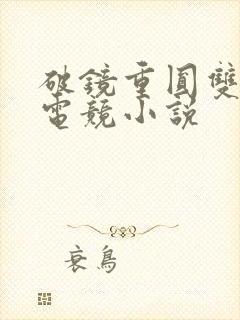 破鏡重圓雙
電競小説
衰鳥